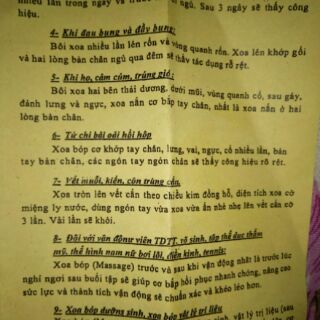 nhiều lần trong ngày và trước ngủ. Sau 3 ngày sẽ thấy công
hiệu.
4- Khi đau bụng và đầy bụng:
Bôi xoa nhiều lần lên rốn và vùng quanh rốn. Xoa lên khớp gối
và hai lòng bàn chân ngủ qua đêm sẽ thấy tác dụng rõ rệt.
5- Khi ho, cảm cúm, trúng gió:
Bôi xoa hai bên thái dương, dưới mũi, vùng quanh cổ, sau gáy,
đánh lưng và ngực, xoa nắn cơ bắp tay chân, nhất là xoa nắn ở hai
lòng bàn chân.
6- Tứ chi bải oải hồi hộp
Xoa bóp cơ khớp tay chân, lưng, vai, ngực, cổ nhiều lần, bàn
tay bàn chân, các ngón tay ngón chân sẽ thấy công hiệu rõ rệt.
7- Vết muỗi, kiến, côn trùng cắn.
Xoa tròn lên vết cắn theo chiều kim đồng hồ, diện tích xoa cở
miệng ly nước, dùng ngón tay vừa xoa vừa ấn nhẹ nhẹ lên vết cắn cở
3 lần. Vài lần sẽ khỏi.
8- Đối với vận động viên TDTT, võ sinh, tập thể dục thẩm
mỹ, thể hình nam nữ bơi lôi, điền kinh, tennis:
Xoa bóp (Massage) trước và sau khi vận động nhất là trước lúc
nghỉ ngơi sau buổi tập sẽ giúp cơ bắp hồi phục nhanh chóng, nâng cao
sức lực và thành tích vận động sẽ chuẩn xác và khéo léo hơn.
9- Xoa bóp dưỡng sinh, xoa bóp vật lý trị liệu
sinh, vật lý trị liệu (sau